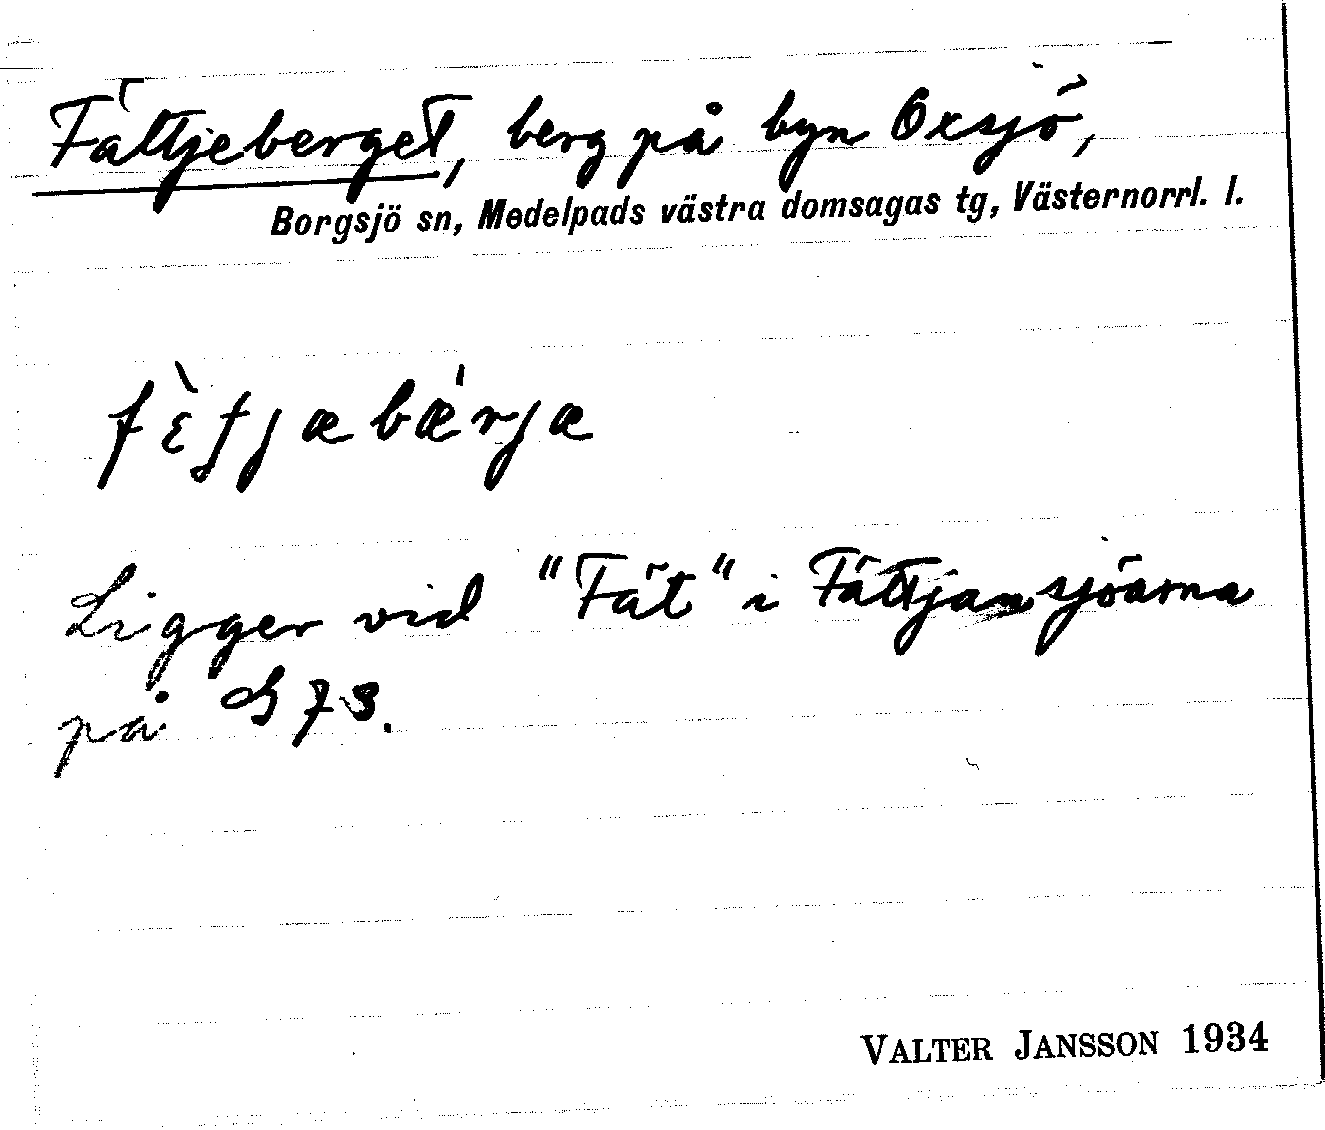 Fättjeberget, berg på byn Oxsjö,
Borgsjö sn, Medelpads västra domsagas tg, Västernorrl. l.
Ligger vid "Fät" i Fättjansjöarna
på S 73.
VALTER JANSSON 1934